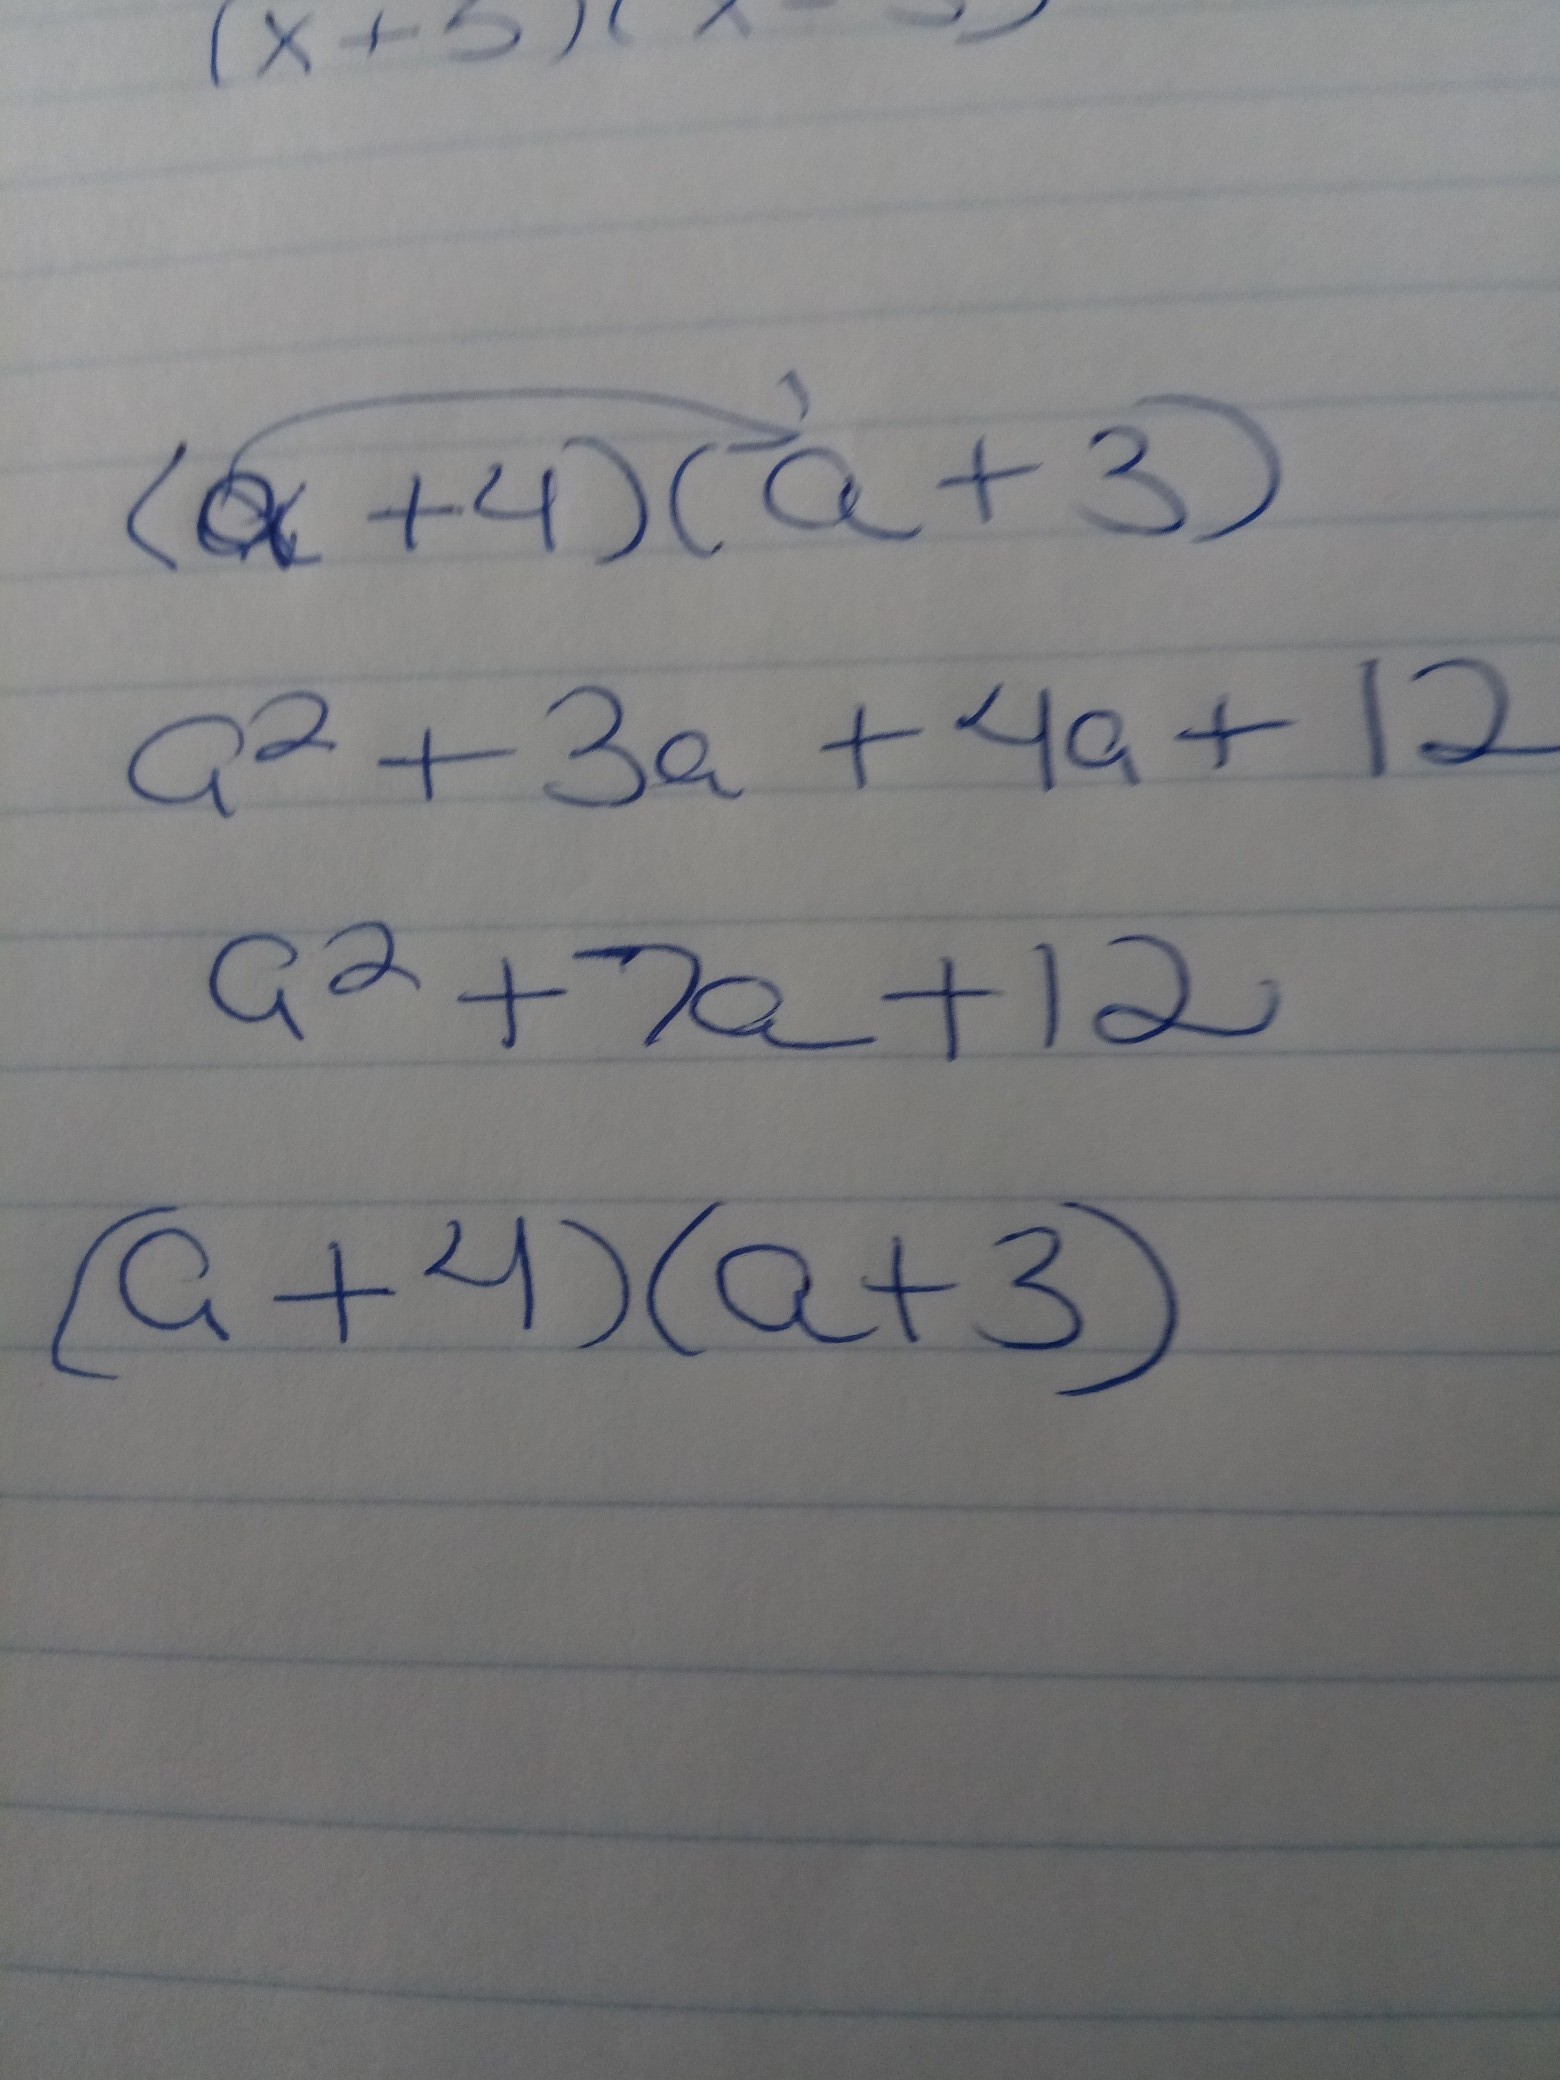 (x+5)(x-5)
(a+4)(a+3)
a²+3a+4a+12
a²+7a+12
(a+4)(a+3)